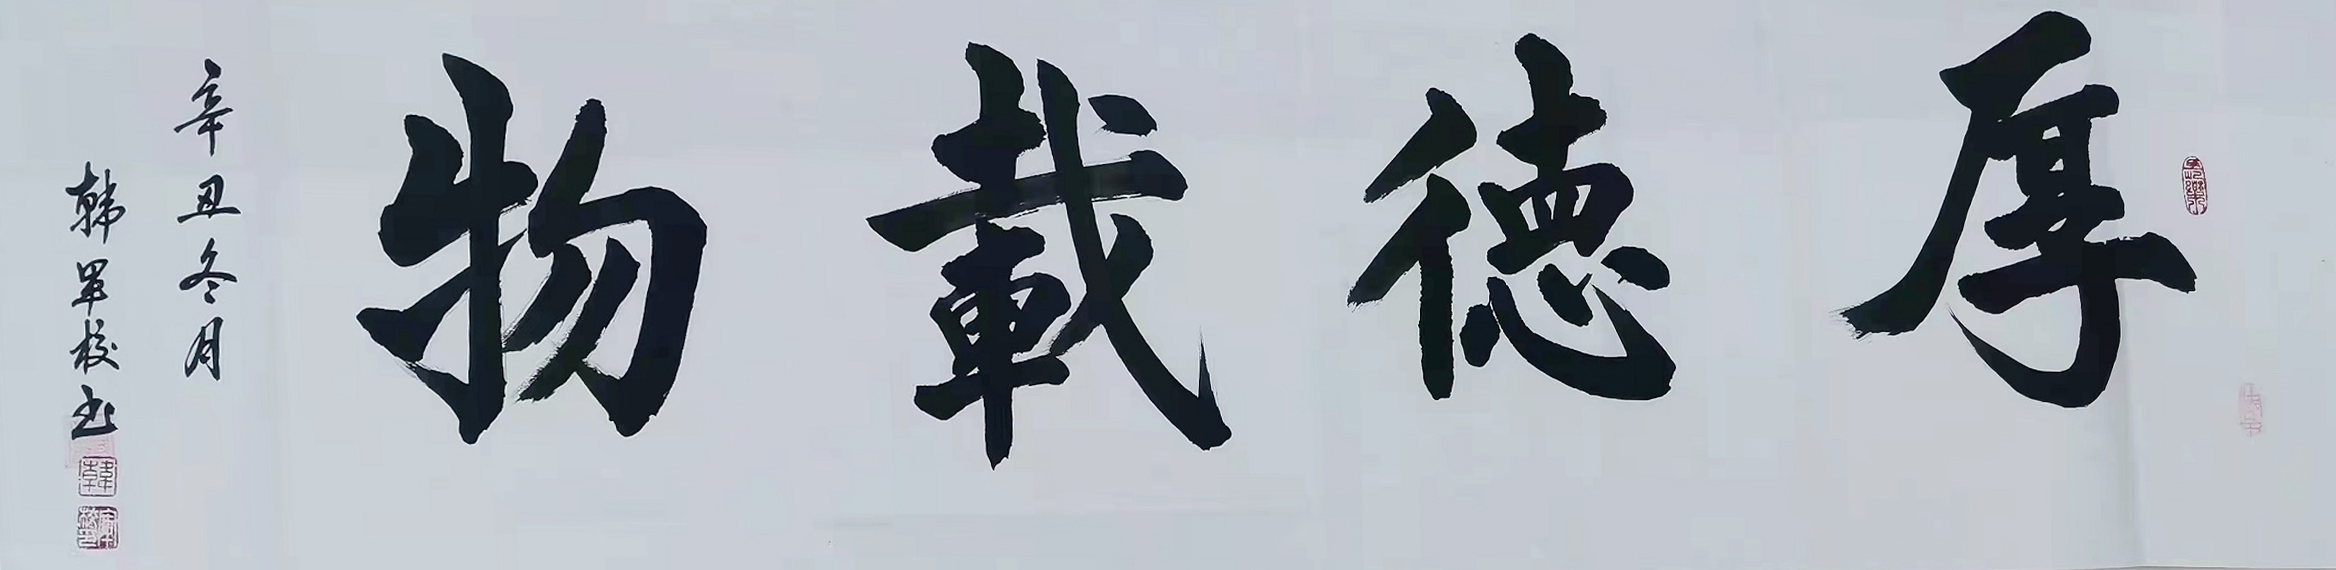 厚德載物
辛丑冬月
韩軍校书
韩